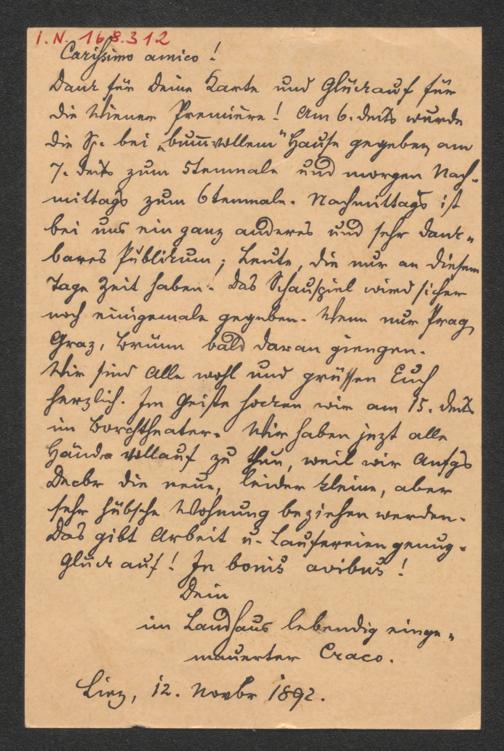 I. N. 168.312
Carissimo amico!
Dank für Deine Karte und Glückauf für
die Wiener Première! Am 6. dMts wurde
die Sp. bei „bummvollem“ Hause gegeben, am
7. dMts zum 5tenmale und morgen Nach-
mittags zum 6tenmale. Nachmittags ist
bei uns ein ganz anderes und sehr dank-
bares Publikum; Leute, die nur an diesem
Tage Zeit haben. Das Schauspiel wird sicher
noch einigemale gegeben. Wenn nur Prag,
Graz, Brünn bald daran giengen.
Wir sind Alle wohl und grüssen Euch
herzlich. Im Geiste hocken wir am 15. dMts
im Borchtheater. Wir haben jezt alle
Hände vollauf zu thun, weil wir Anfgs
Decbr die neue, leider kleine, aber
sehr hübsche Wohnung beziehen werden.
Das gibt Arbeit u. Laufereien genug.
Glück auf! In bonis avibus!
Dein
im Landhaus lebendig einge-
mauerter Craco.
Linz, 12. Novbr 1892.